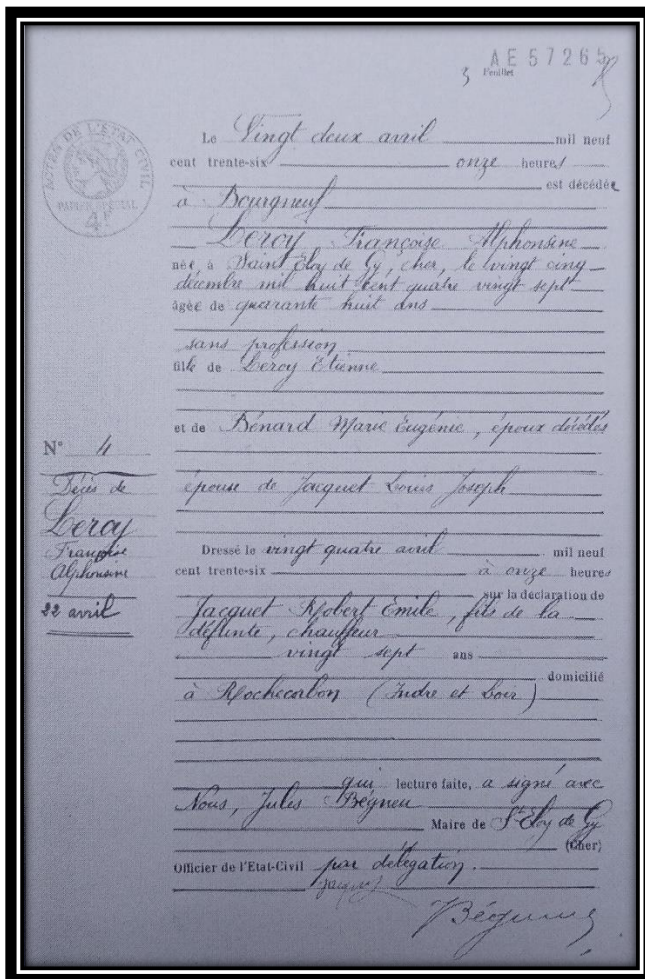 AE 57265
3 Feuillet
ACTES DE L'ÉTAT CIVIL
PAPIER SPÉCIAL
4F
Le Vingt deux avril mil neuf
cent trente-six onze heures
est décédée
à Bourgneuf
Leroy Françoise Alphonsine
née à Saint Eloy de Gy, cher, le vingt cinq
décembre mil huit cent quatre vingt sept
âgée de quarante huit ans
sans profession
fille de Leroy Etienne
et de Bénard Marie Eugénie, époux décédés
épouse de Jacquet Louis Joseph
N° 4
Décès de
Leroy
Françoise
Alphonsine
22 avril
Dressé le vingt quatre avril mil neuf
cent trente-six à onze heures
sur la déclaration de
Jacquet Robert Emile, fils de la
défunte, chauffeur
vingt sept ans
domicilié
à Rochecorbon (Indre et Loir)
qui lecture faite, a signé avec
Nous, Jules Bégneu
Maire de St Eloy de Gy
(Cher)
Officier de l'Etat-Civil par délégation.
Jacquet